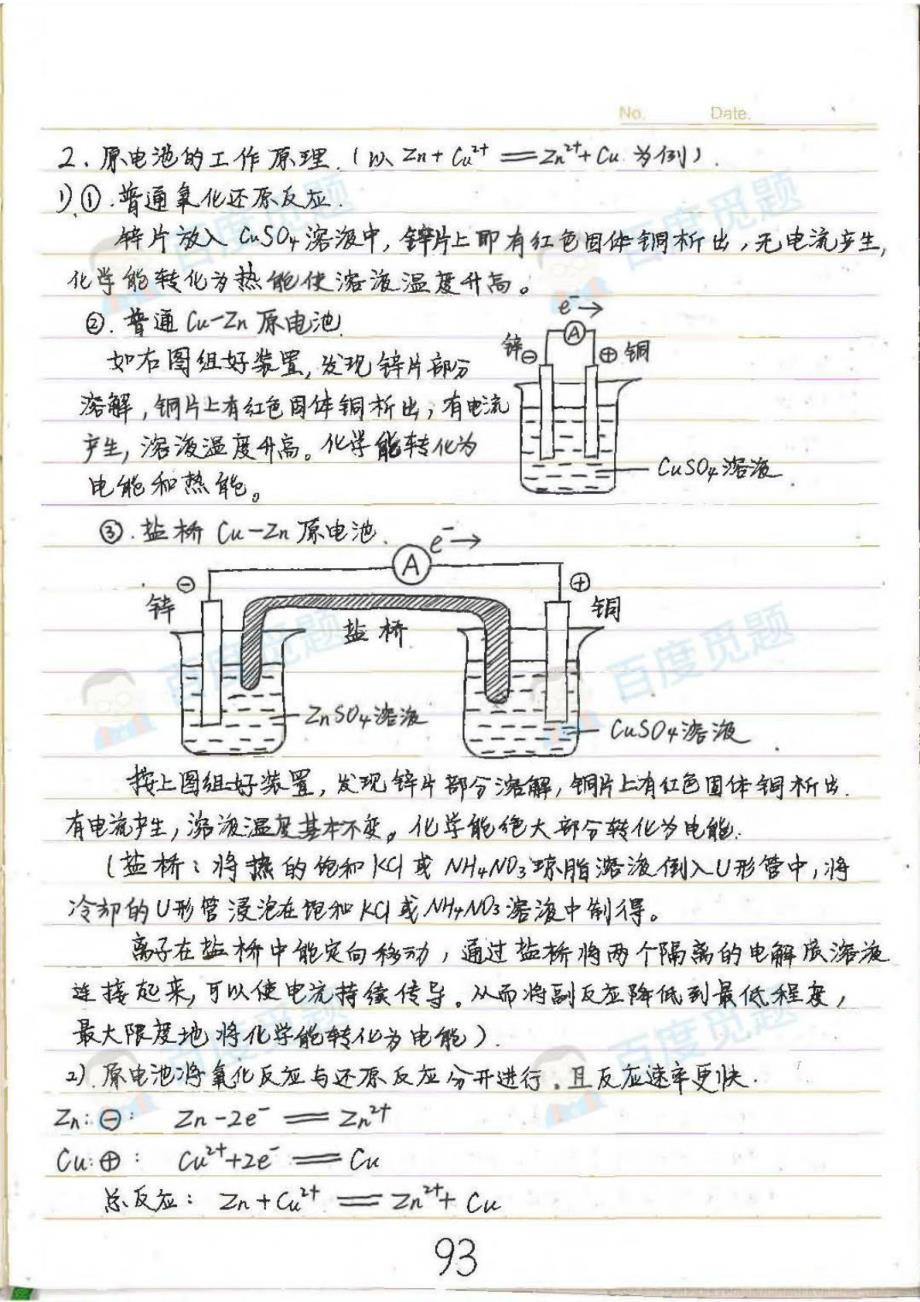 No. Date.
2、原电池的工作原理.(以 Zn+Cu²⁺══Zn²⁺+Cu 为例).
1).①.普通氧化还原反应.
锌片放入 CuSO₄溶液中,锌片上即有红色固体铜析出,无电流产生,
化学能转化为热能使溶液温度升高。
②.普通 Cu-Zn 原电池.
如右图组好装置,发现锌片部分
溶解,铜片上有红色固体铜析出,有电流
产生,溶液温度升高。化学能转化为
电能和热能。
e⁻→
A
锌⊖
⊕铜
CuSO₄溶液.
③.盐桥 Cu-Zn 原电池.
e⁻→
A
⊖
锌
⊕
铜
盐桥
ZnSO₄溶液
CuSO₄溶液.
按上图组好装置,发现锌片部分溶解,铜片上有红色固体铜析出.
有电流产生,溶液温度基本不变。化学能绝大部分转化为电能.
(盐桥:将热的饱和KCl或NH₄NO₃琼脂溶液倒入U形管中,将
冷却的U形管浸泡在饱和KCl或NH₄NO₃溶液中制得。
离子在盐桥中能定向移动,通过盐桥将两个隔离的电解质溶液
连接起来,可以使电流持续传导。从而将副反应降低到最低程度,
最大限度地将化学能转化为电能).
2).原电池将氧化反应与还原反应分开进行.且反应速率更快.
Zn:⊖: Zn-2e⁻══Zn²⁺
Cu:⊕: Cu²⁺+2e⁻══Cu
总反应: Zn+Cu²⁺══Zn²⁺+Cu
93
百度觅题
百度觅题
百度觅题
百度觅题
百度觅题
百度觅题